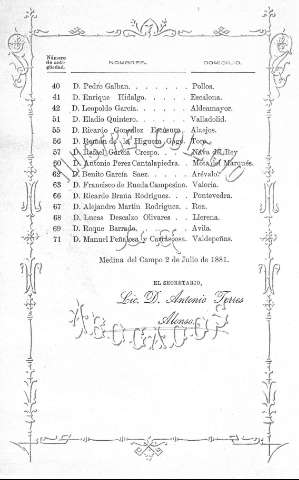 Número de antigüedad. NOMBRES. DOMICILIO.
40 D. Pedro Galban. Pollos.
41 D. Enrique Hidalgo. Escalona.
42 D. Leopoldo García. Aldeamayor.
51 D. Eladio Quintero. Valladolid.
55 D. Ricardo González Alaejos.
56 D. Román de la Higuera Toro.
57 D. Rafael García Crespo. Nava del Rey
60 D. Antonio Perez Cantalapiedra. Mota del Marqués.
62 D. Benito García Saez. Arévalo.
63 D. Francisco de Rueda Campesino. Valoria.
66 D. Ricardo Braña Rodriguez. Pontevedra.
67 D. Alejandro Martin Rodriguez. Roa.
68 D. Lucas Descalzo Olivares Llerena.
69 D. Roque Barrado. Avila.
71 D. Manuel Peñalosa y Valdepeñas.
Medina del Campo 2 de Julio de 1881.
EL SECRETARIO,
Lic. D. Antonio Torres
Alonso.
ABOGADOS